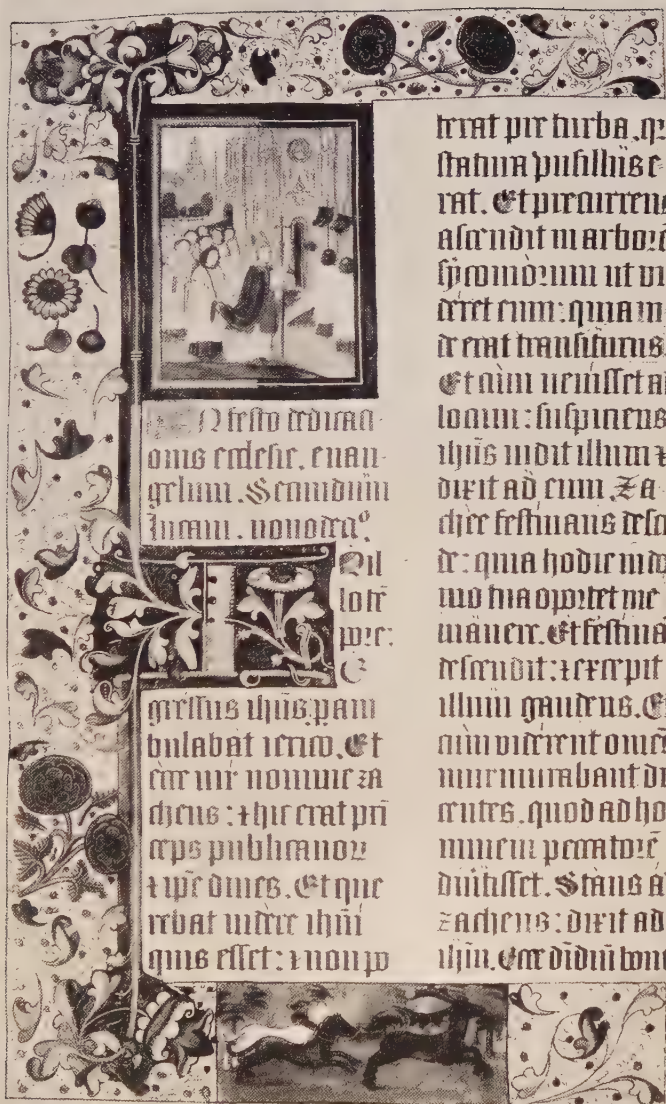 In festo dedicati-
onis ecclesie. euan-
gelium. Secundum
lucam. nonodeci⁰.
IN il
lo tē
pore:
E
gressus ihūs: pam
bulabat ierico. Et
ecce uir nomine za
cheus: ⁊ hic erat pri
ceps publicanoꝝ
⁊ ip̄e diues. Et que
rebat uidere ihm̄
quis esset: ⁊ non po
terat pre turba. q
statura pusillus e-
rat. Et precurrens
ascendit in arborē
sycomorum ut vi
deret eum: quia in
de erat transiturus.
Et cum uenisset ad
locum: suspiciens
ihūs uidit illum ⁊
dixit ad eum. Za
chee festinans desce
de: quia hodie in do
mo tua oportet me
manere. Et festina
descendit: ⁊ excepit
illum gaudens. Et
cum viderent om̄es
murmurabant di
centes. quod ad ho
minem peccatorē
diuertisset. Stans a
zacheus: dixit ad
ihm̄. Ecce dīdiū bono